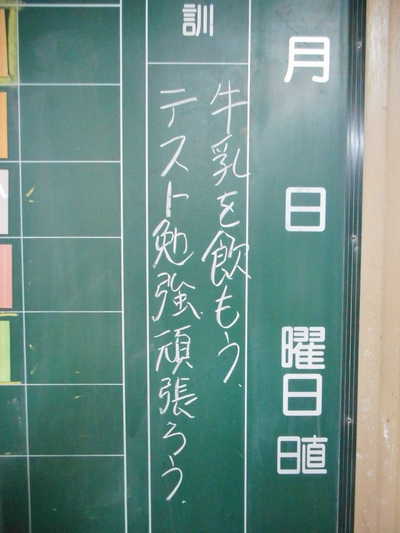 月 日 曜日
日直
訓
牛乳を飲もう.
テスト勉強頑張ろう.